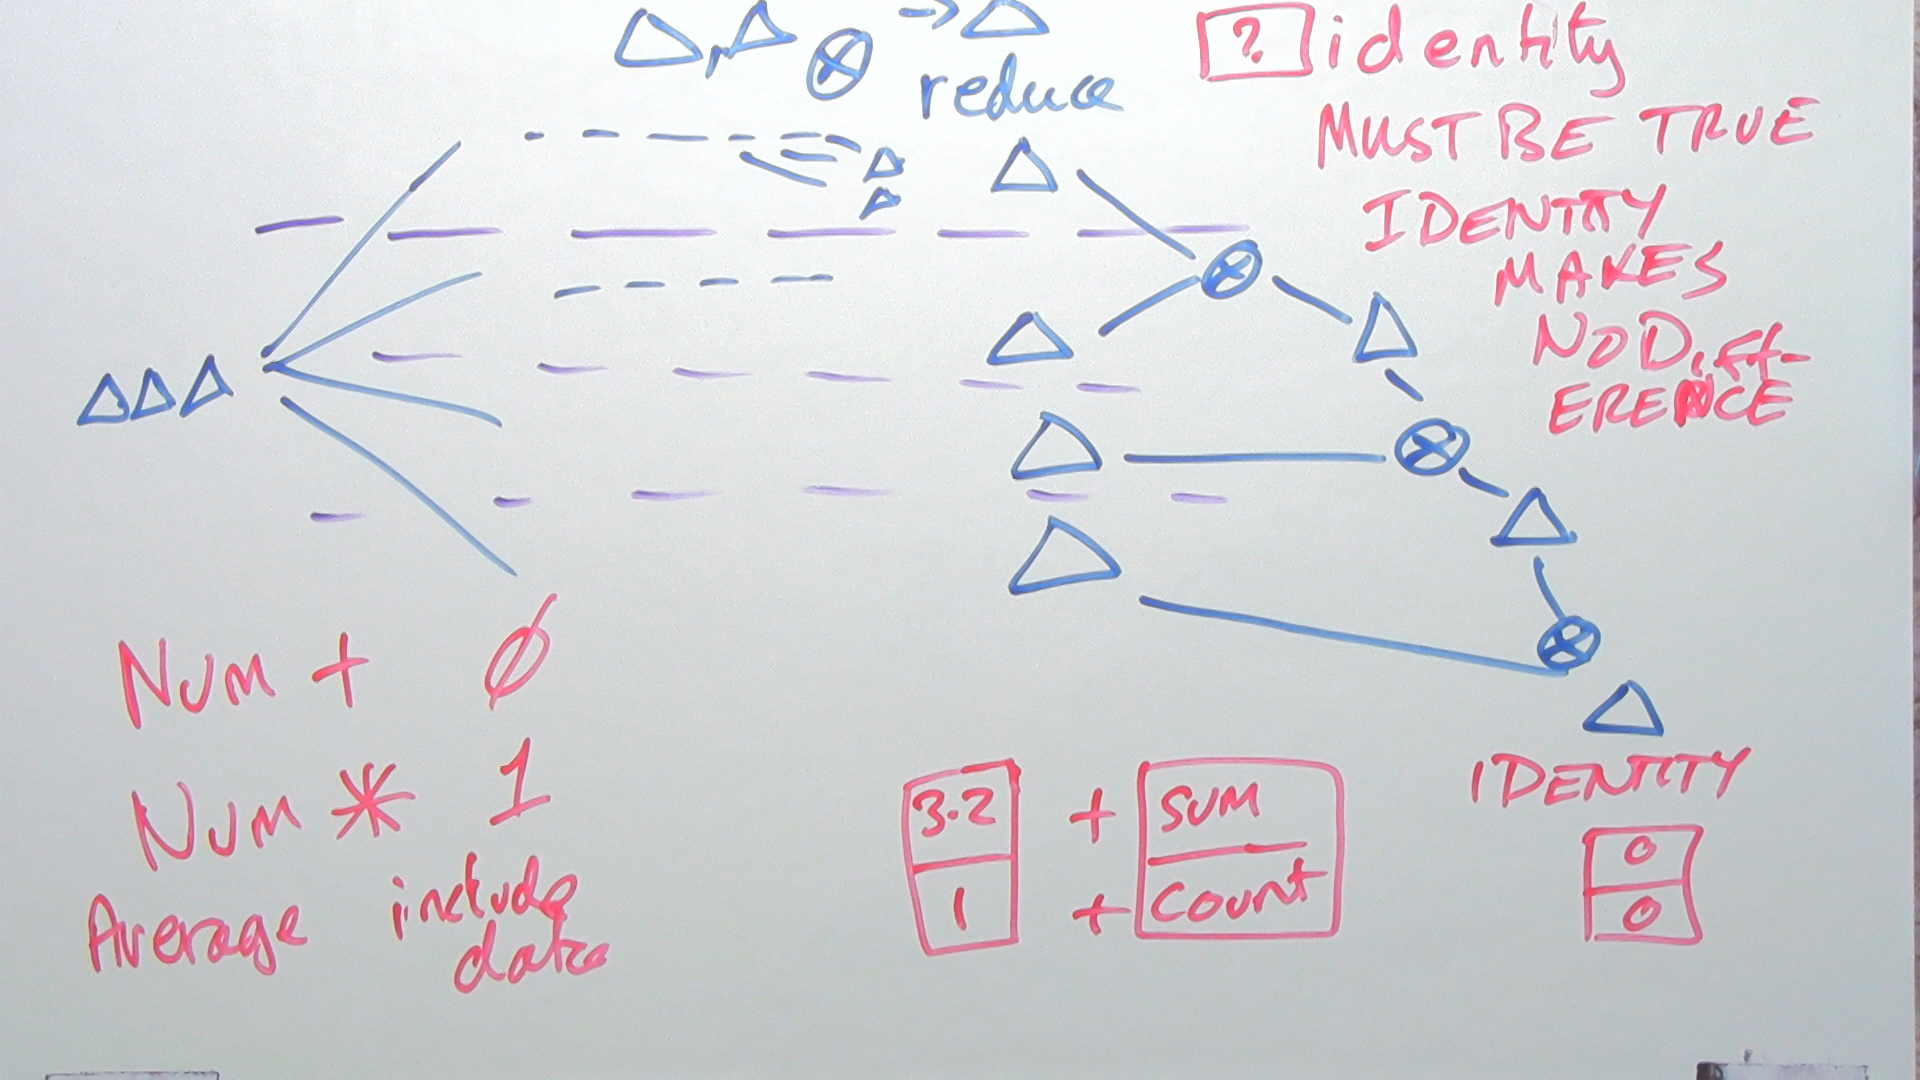 reduce
? identity
MUST BE TRUE
IDENTITY
MAKES
NO Diff-
ERENCE
Num + 0
Num * 1
Average include
data
3.2 + SUM
1 + COUNT
IDENTITY
0
0